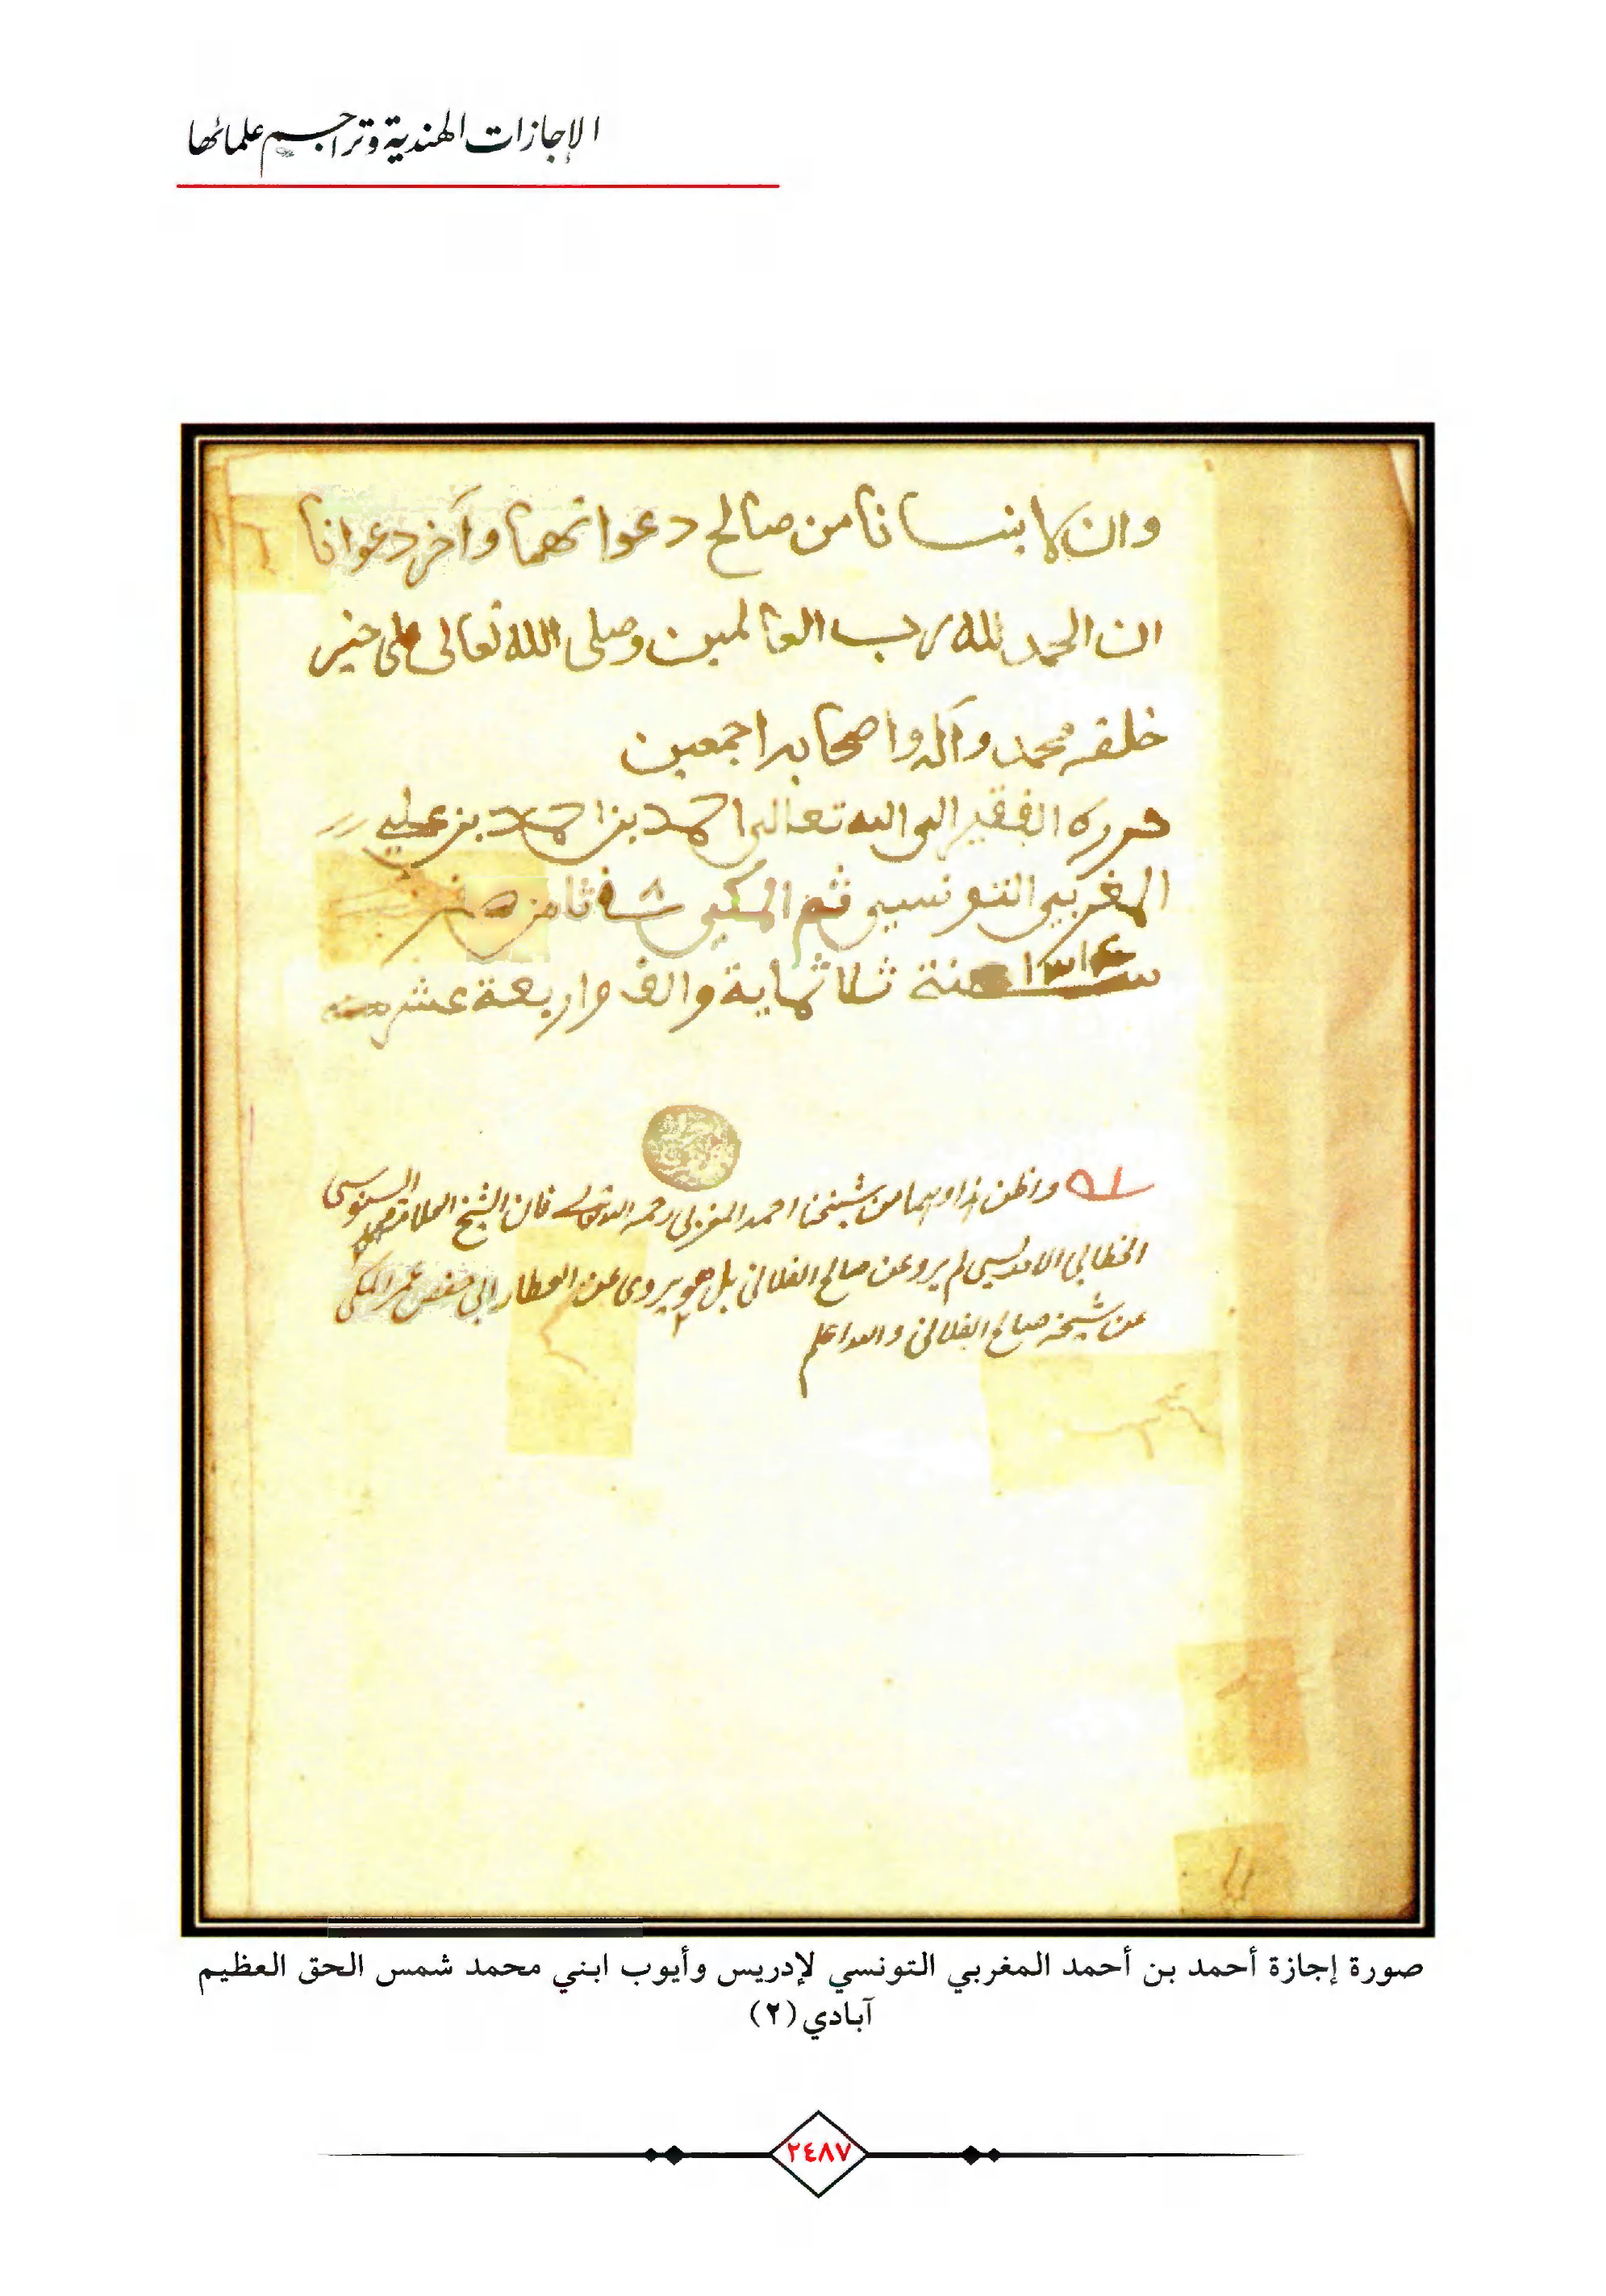 الإجازات الهندية وتراجم علمائها
وان لا ينسانا من صالح دعواتهما وآخر دعوانا
ان الحمد لله رب العالمين وصلى الله تعالى على خير
خلقه محمد وآله واصحابه اجمعين
حرره الفقير الى الله تعالى احمد بن احمد بن علي
المغربي التونسي ثم المكي في ٨ ثامن صفر
سنة ١٣١٤ سنة ثلاثماية والف واربعة عشر
واظن هذا وهما من شيخنا احمد المغربي رحمه الله تعالى فان الشيخ العلامة محمد السنوسي
الخطابي الادريسي لم يرو عن صالح الفلاني بل هو يروى عن العطار ابى حفص عمر المكى
عن شيخه صالح الفلاني والله اعلم
صورة إجازة أحمد بن أحمد المغربي التونسي لإدريس وأيوب ابني محمد شمس الحق العظيم
آبادي (٢)
٢٤٨٧